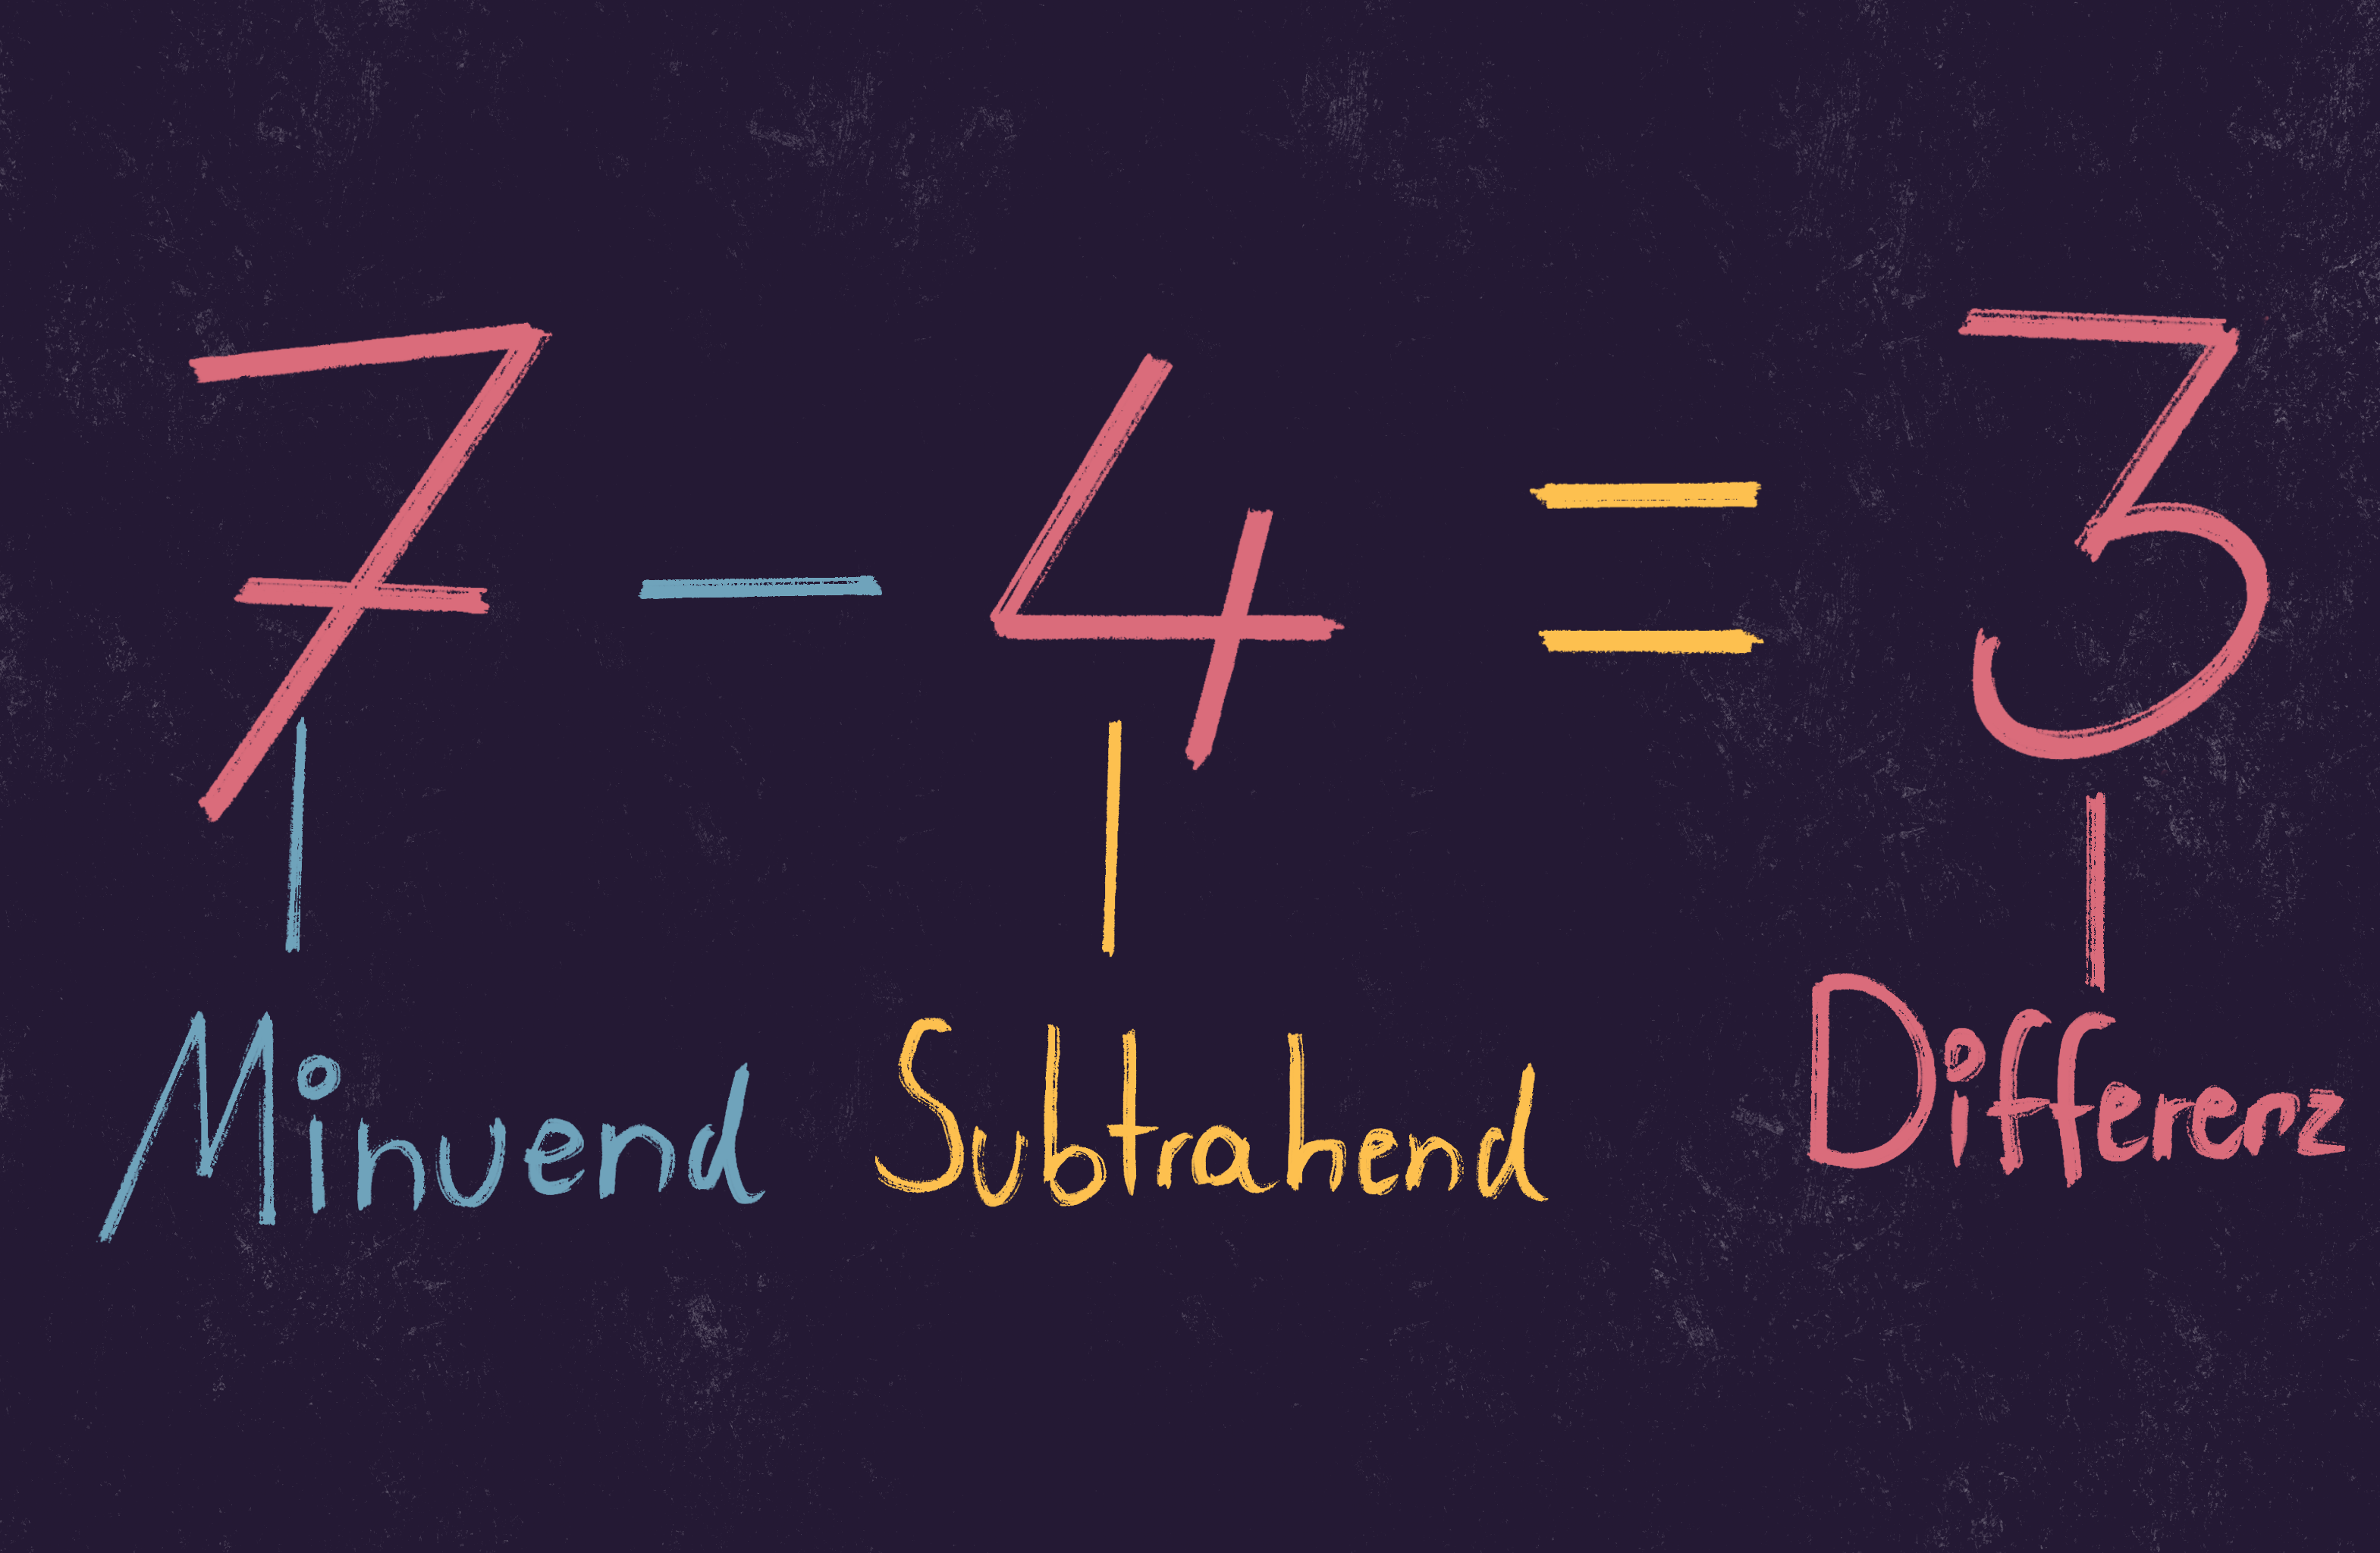 7 - 4 = 3
Minuend Subtrahend Differenz